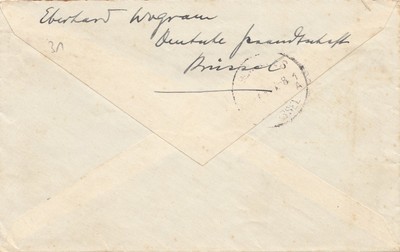 Eberhard Wogram
Deutsche Gesandtschaft
Brüssel